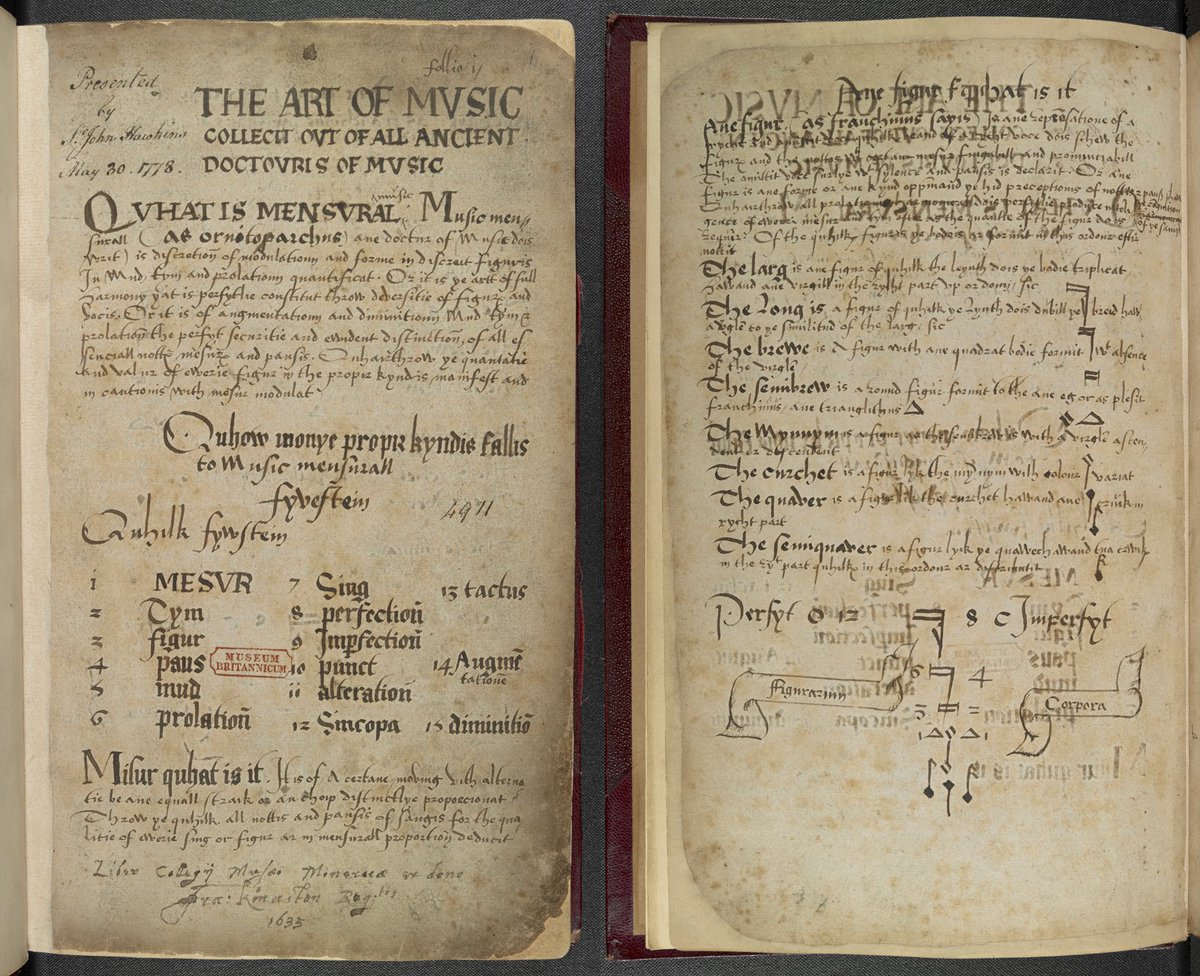 follio ij
Presented
by
Sr. John Hawkins
May 30. 1778.
THE ART OF MVSIC
COLLECIT OVT OF ALL ANCIENT
DOCTOURIS OF MVSIC
QVHAT IS MENSVRAL music Music men,
surall (as ornitoparchus) ane doctur of Music dois
writ) is discretion of modulationn and forme in discreit figuris
In Mud, tym and prolationn quantificat. Or it is ye artt of full
harmony yat is perfytlie constitut throw deversitie of figurx and
vocis. Or it is of augmentationn and diminitionn, Mud tym &
prolation the perfyt securitie and evident distinction, of all es
senciall nottx, mesurx and pausis. Quhairthrow ye quantatie
and valur of everie figur in the propir kynd is manifest and
in cantionis with mesur modulat
Quhow monye propir kyndis fallis
to Music mensurall
fyvestein
4911
Quhilk fywstein
1 MESVR 7 Sing 13 tactus
2 Tym 8 perfectioñ
3 figur 9 Impfectioñ
4 paus 10 punct 14 Augmē
tatione
5 mud 11 alteratioñ
6 prolatioñ 12 Sincopa 15 diminitiō
MUSEUM
BRITANNICUM
Misur quhat is it. It is of A certane moving with alterna
tie be ane equall straik or an thoip distinctlye proporcionat
Throw ye quhilk all nottis and pausis of sangis for the qua
litie of everie sing or figur ar in mensurall proportion deducit
Liber Collegij Musei Minervae ex dono
Fra: Kinaston Reg:tis
1635
Ane figur quhat is it
Ane figur, as franchinus sayis Is ane representatione of a
rycht and voce dois schew the
figurx and the nottis of certane mesur and pronunciabill
The amittit voce surlye wt sylence and pausis is declarit. Or ane
figur is ane forme or ane kynd oppinand ye hid preceptions of nottis
Quhairthrow all prolation
gence of everie mesur as the quantite of the figur dois
requir. Of the quhilkx figuris ye bodeis ar formit in this ordour
nottis
The larg is ane figur of quhilk the lenth dois ye bodie triplicat
Hawand ane virgill in the rycht part vp or doun, sic
The Long is, a figur of quhilk ye lynth dois dubill ye breid haw,
a virgle to ye similitud of the larg, sic
The brewe is A figur with ane quadrat bodie formit wt absence
of the virgle
The semibrew is a round figur formit to the ane eg or as plesit
franchinus, ane trianglithus
The Mynym is a figur as the semibrew is with a virgle ascen,
dent or descendent
The curchet is a figur lyk the mynym with colour variat
The quaver is a figur lyk the curchet hawand ane cruik in
rycht part
The semiquaver is a figur lyik ye quawer hawand tua crwikx
in the rycht part quhilkx in this ordour ar
Perfyt O 12 8 C Imperfyt
6 4
Figurarum
Corpora
3 2
1 1